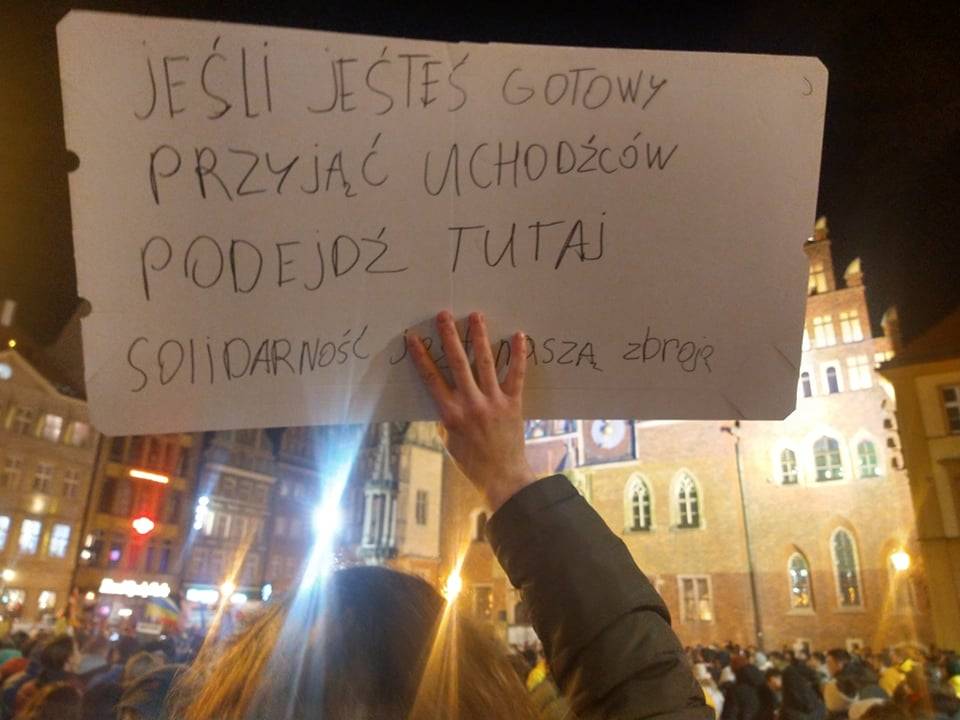 JEŚLI JEŚTEŚ GOTOWY
PRZYJĄĆ UCHODŹCÓW
PODEJDŹ TUTAJ
SOLIDARNOŚĆ jest naszą zbroją